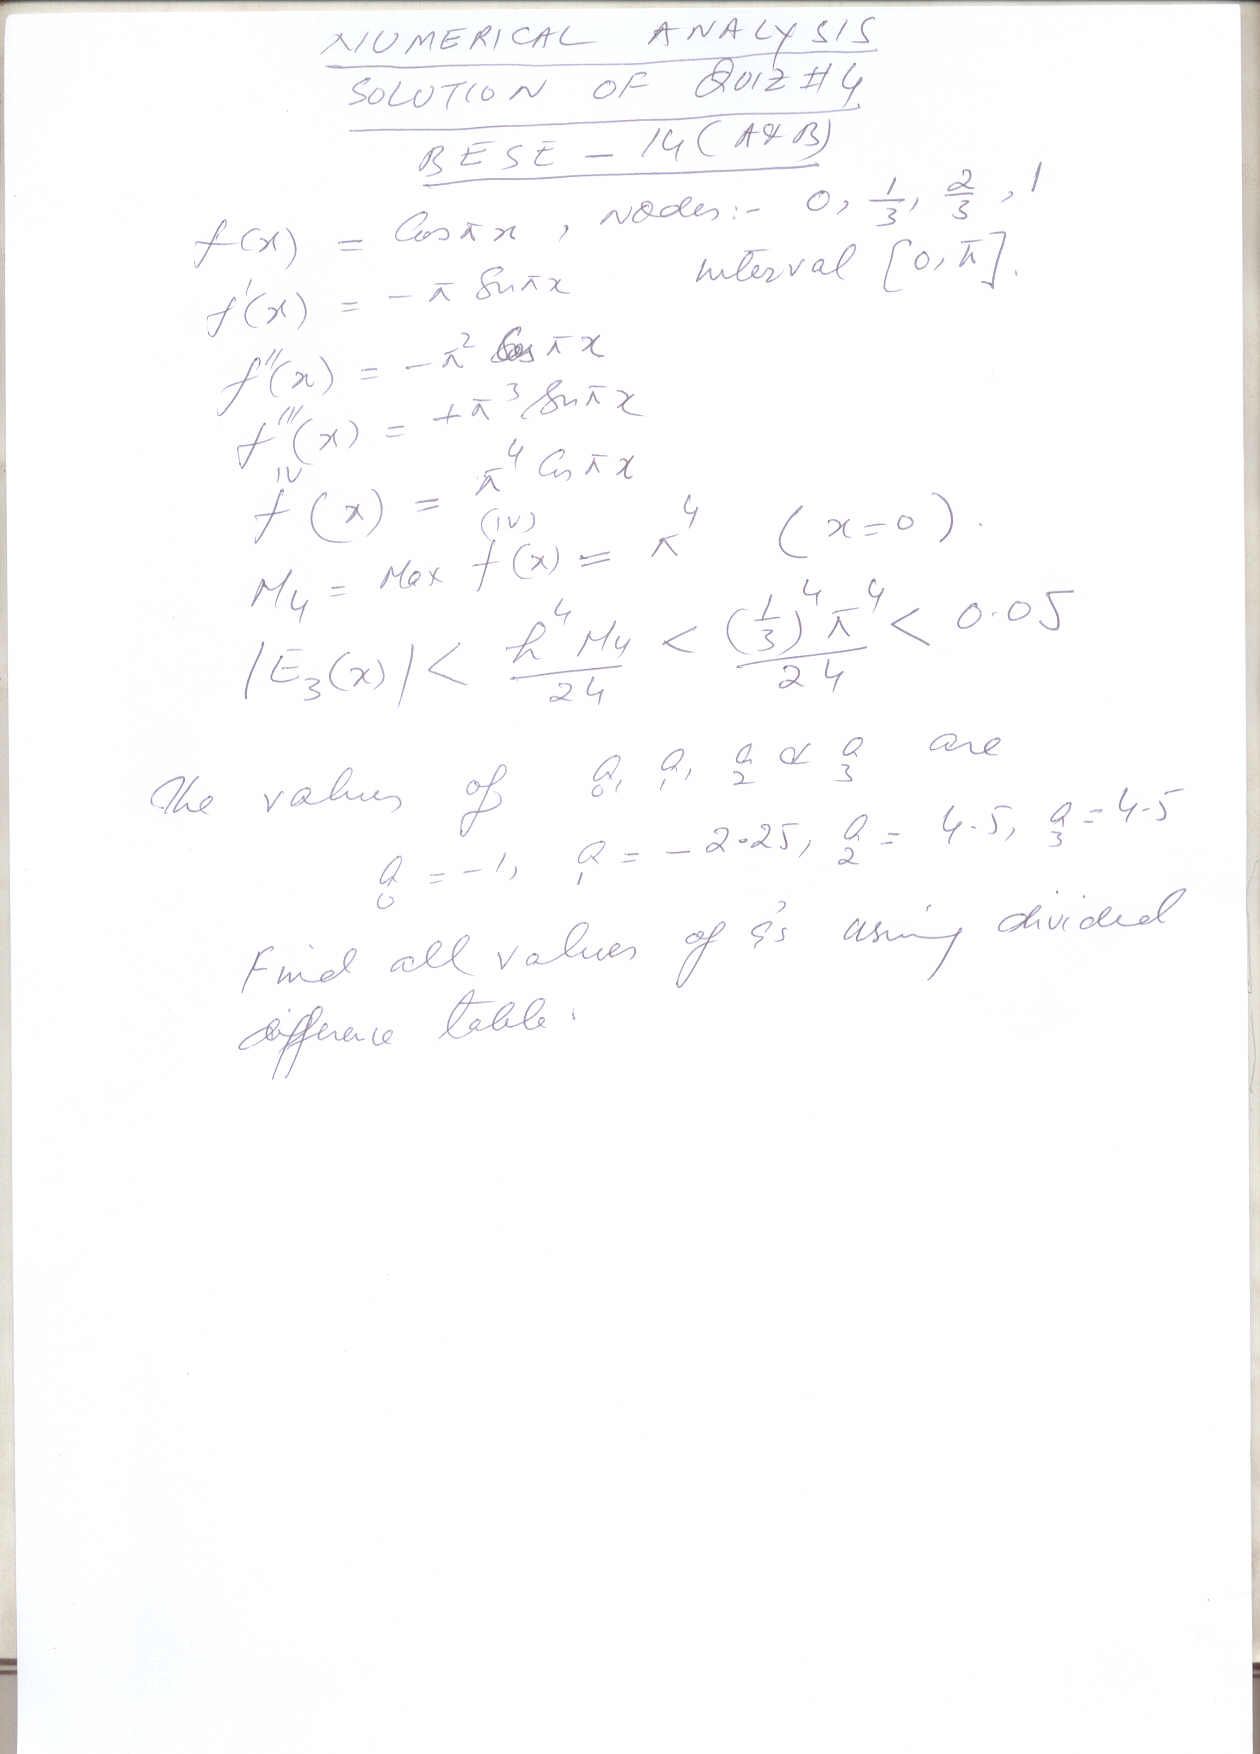 NUMERICAL ANALYSIS
SOLUTION OF QUIZ #4
BESE - 14 (A & B)
f(x) = Cos πx , Nodes:- 0, 1/3, 2/3, 1
f'(x) = -π Sin πx interval [0, π].
f''(x) = -π² Cos πx
f'''(x) = +π³ Sin πx
f^IV(x) = π⁴ Cos πx
M₄ = Max f^(IV)(x) = π⁴ (x=0).
|E₃(x)| < h⁴ M₄ / 24 < (1/3)⁴ π⁴ / 24 < 0.05
The values of a₀, a₁, a₂ & a₃ are
a₀ = -1, a₁ = -2.25, a₂ = 4.5, a₃ = 4.5
Find all values of a's using divided
difference table.